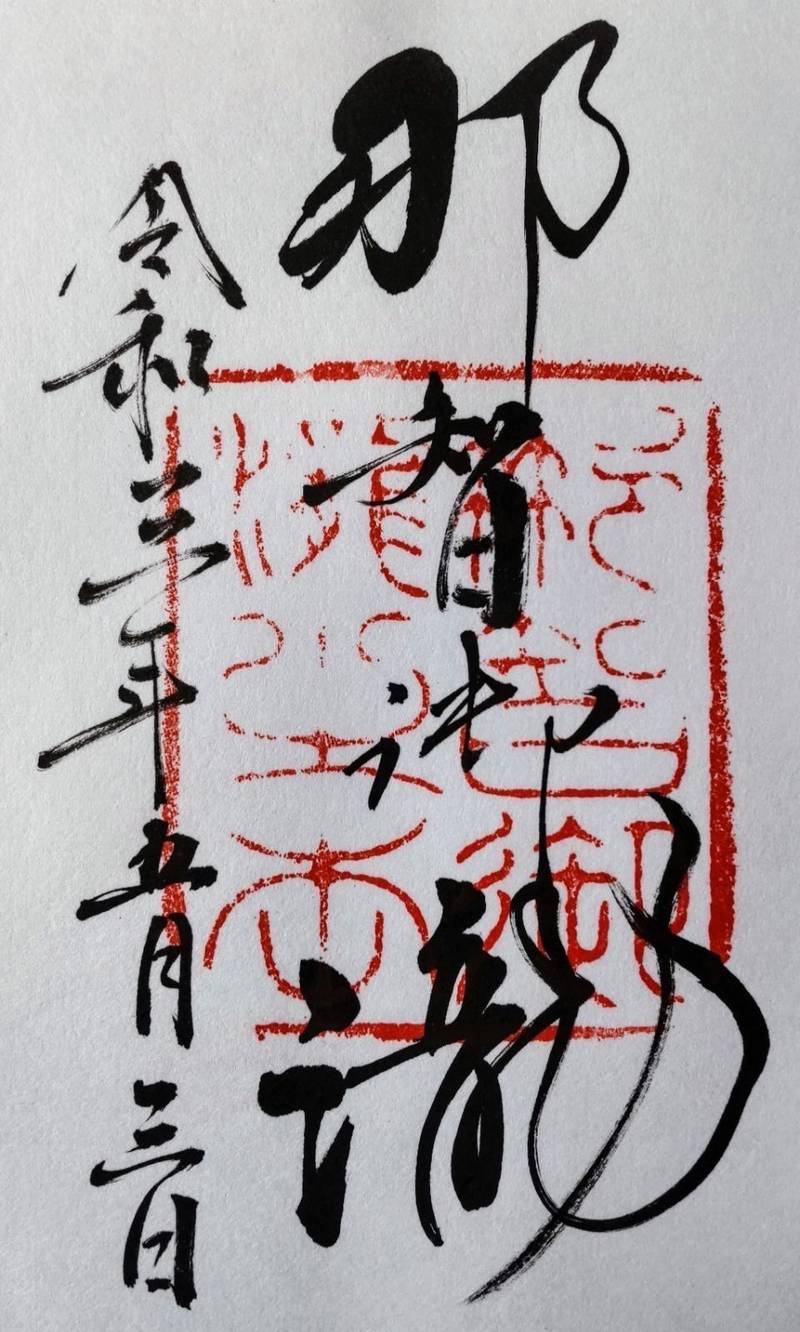 那智御瀧
令和三年五月三日